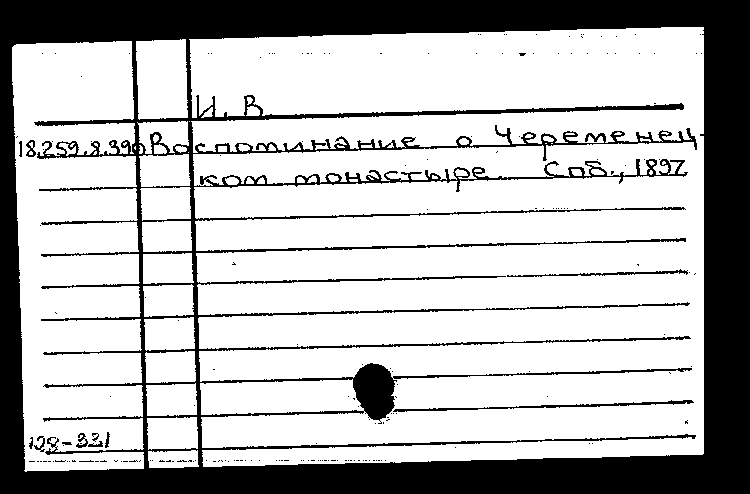 И. В.
18.259.8.390 Воспоминание о Черeменец-
ком монастыре. Спб., 1897.
128-331